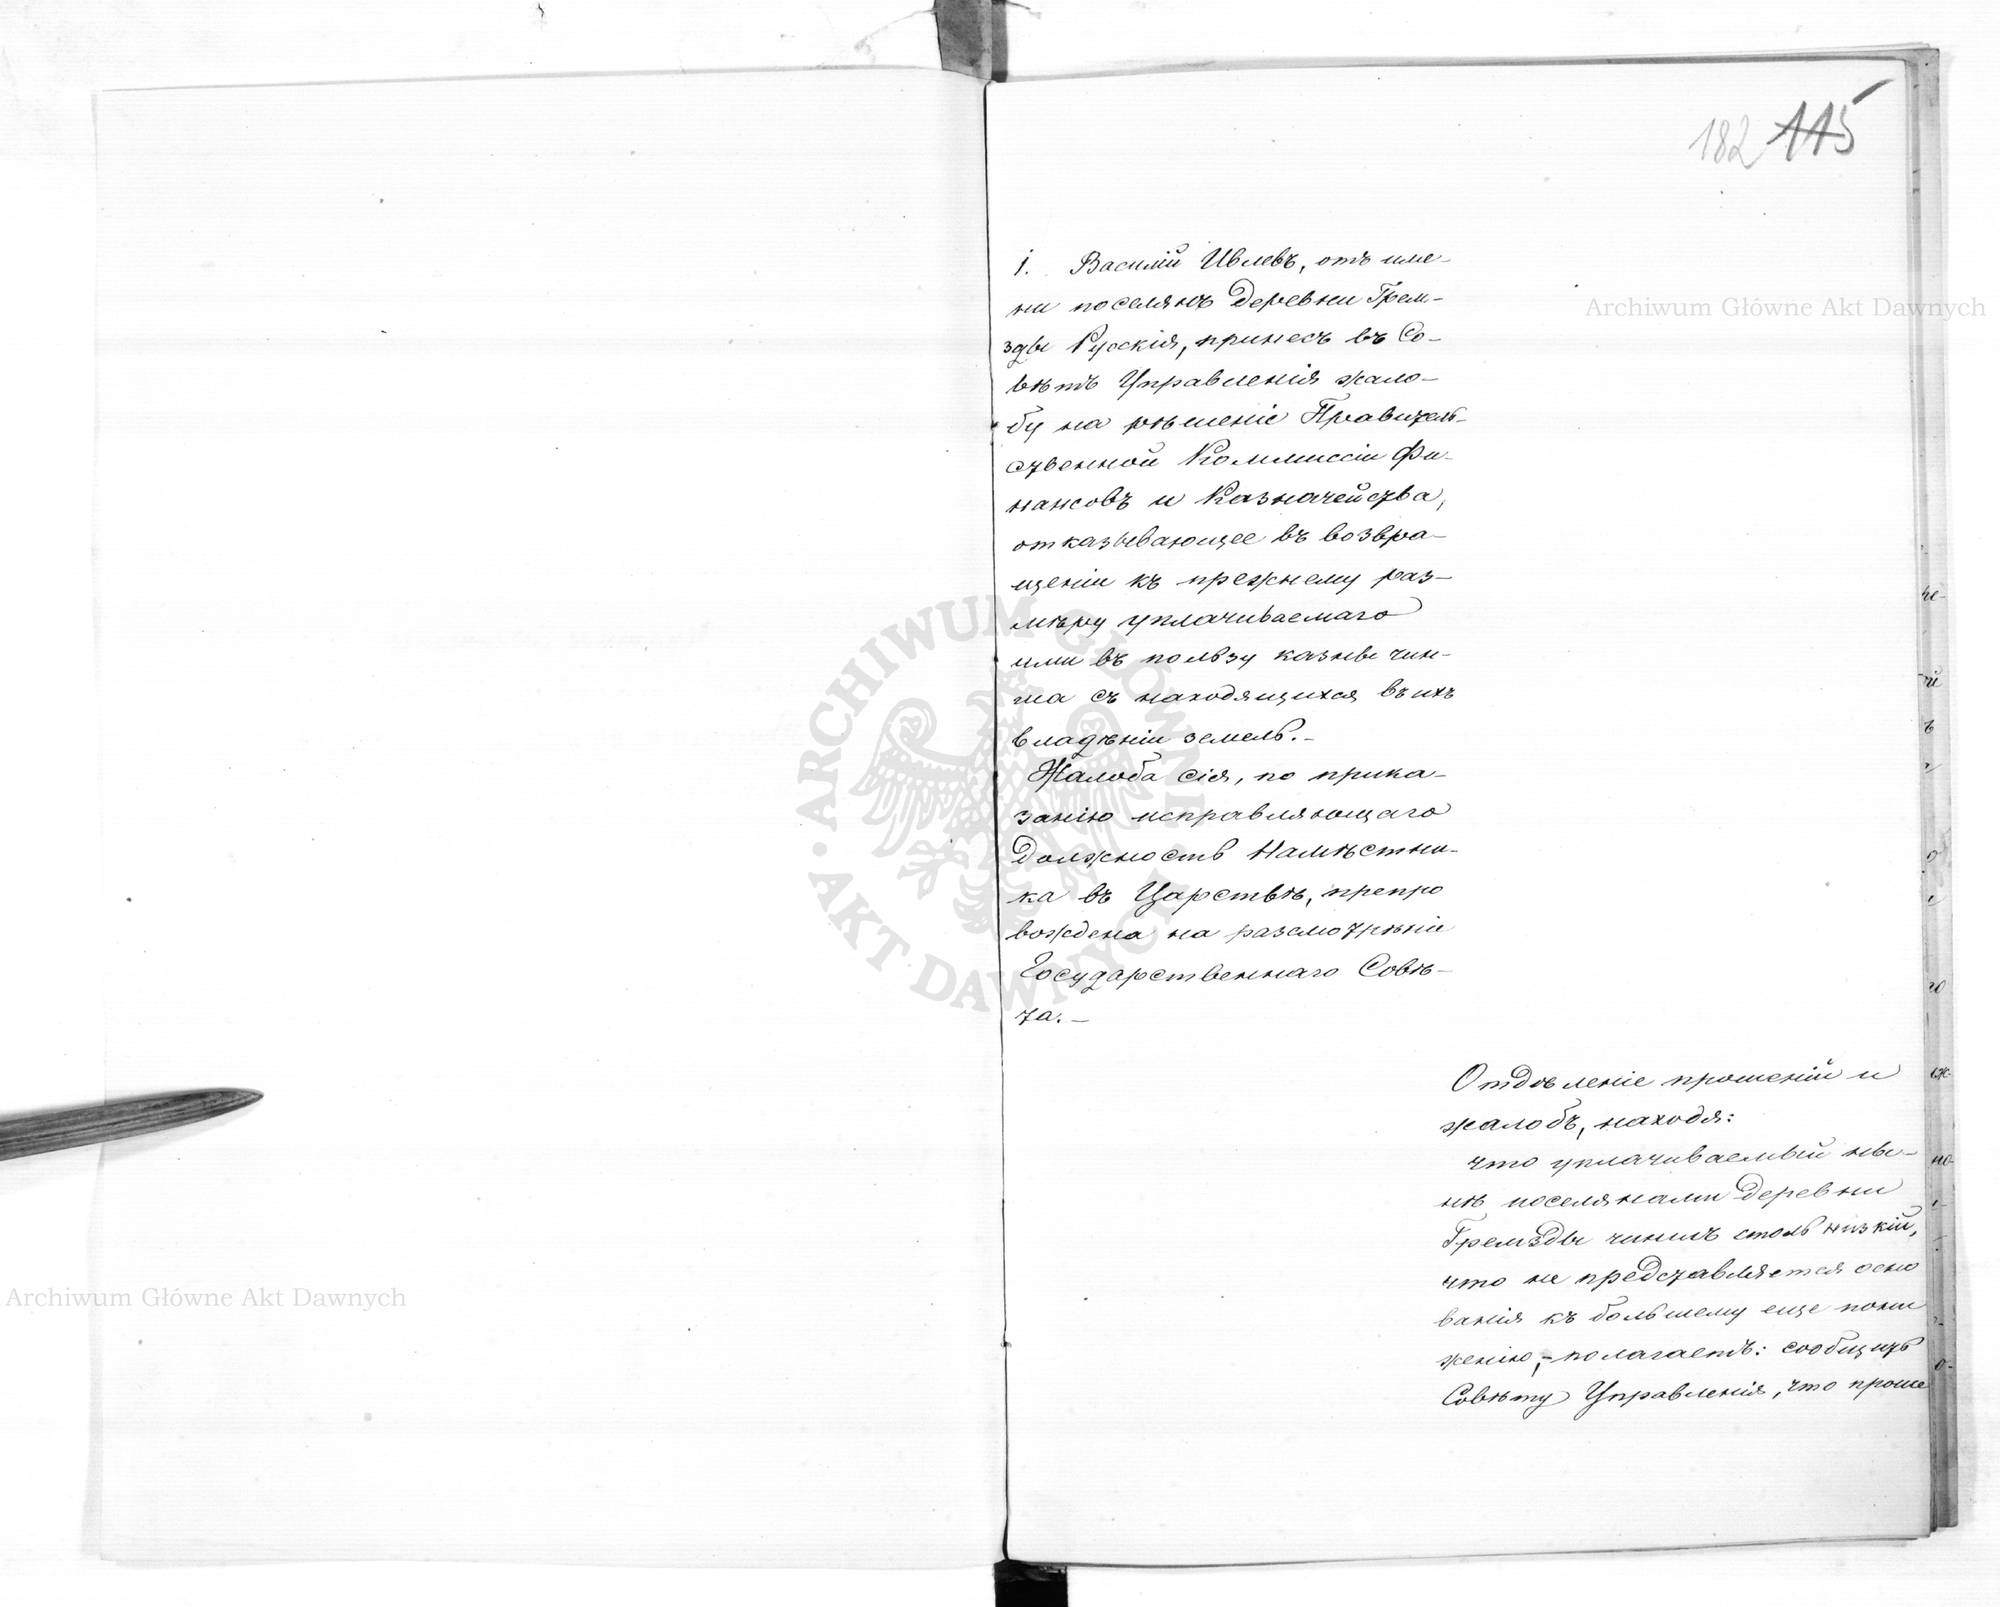 182 115
1. Василій Ивлевъ, отъ име-
ни поселянъ деревни Грем-
зды Русскія, принесъ въ Со-
вѣтъ Управленія жало-
бу на рѣшеніе Правитель-
ственной Коммиссіи Фи-
нансовъ и Казначейства,
отказывающее въ возвра-
щеніи къ прежнему раз-
мѣру уплачиваемаго
ими въ пользу казны чин-
ша съ находящихся въ ихъ
владѣніи земель.-
Жалоба сія, по прика-
занію исправляющаго
должность Намѣстни-
ка въ Царствѣ, препро
вождена на разсмотрѣніе
Государственнаго Совѣ-
та.-
Отдѣленіе прошеній и
жалобъ, находя:
что уплачиваемый ны-
нѣ поселянами деревни
Гремзды чиншъ столь низкій,
что не представляется осно
ванія къ большему еще пони
женію,- полагаетъ: сообщить
Совѣту Управленія, что проше
Archiwum Główne Akt Dawnych
Archiwum Główne Akt Dawnych
ARCHIWUM GŁÓWNE · AKT DAWNYCH ·